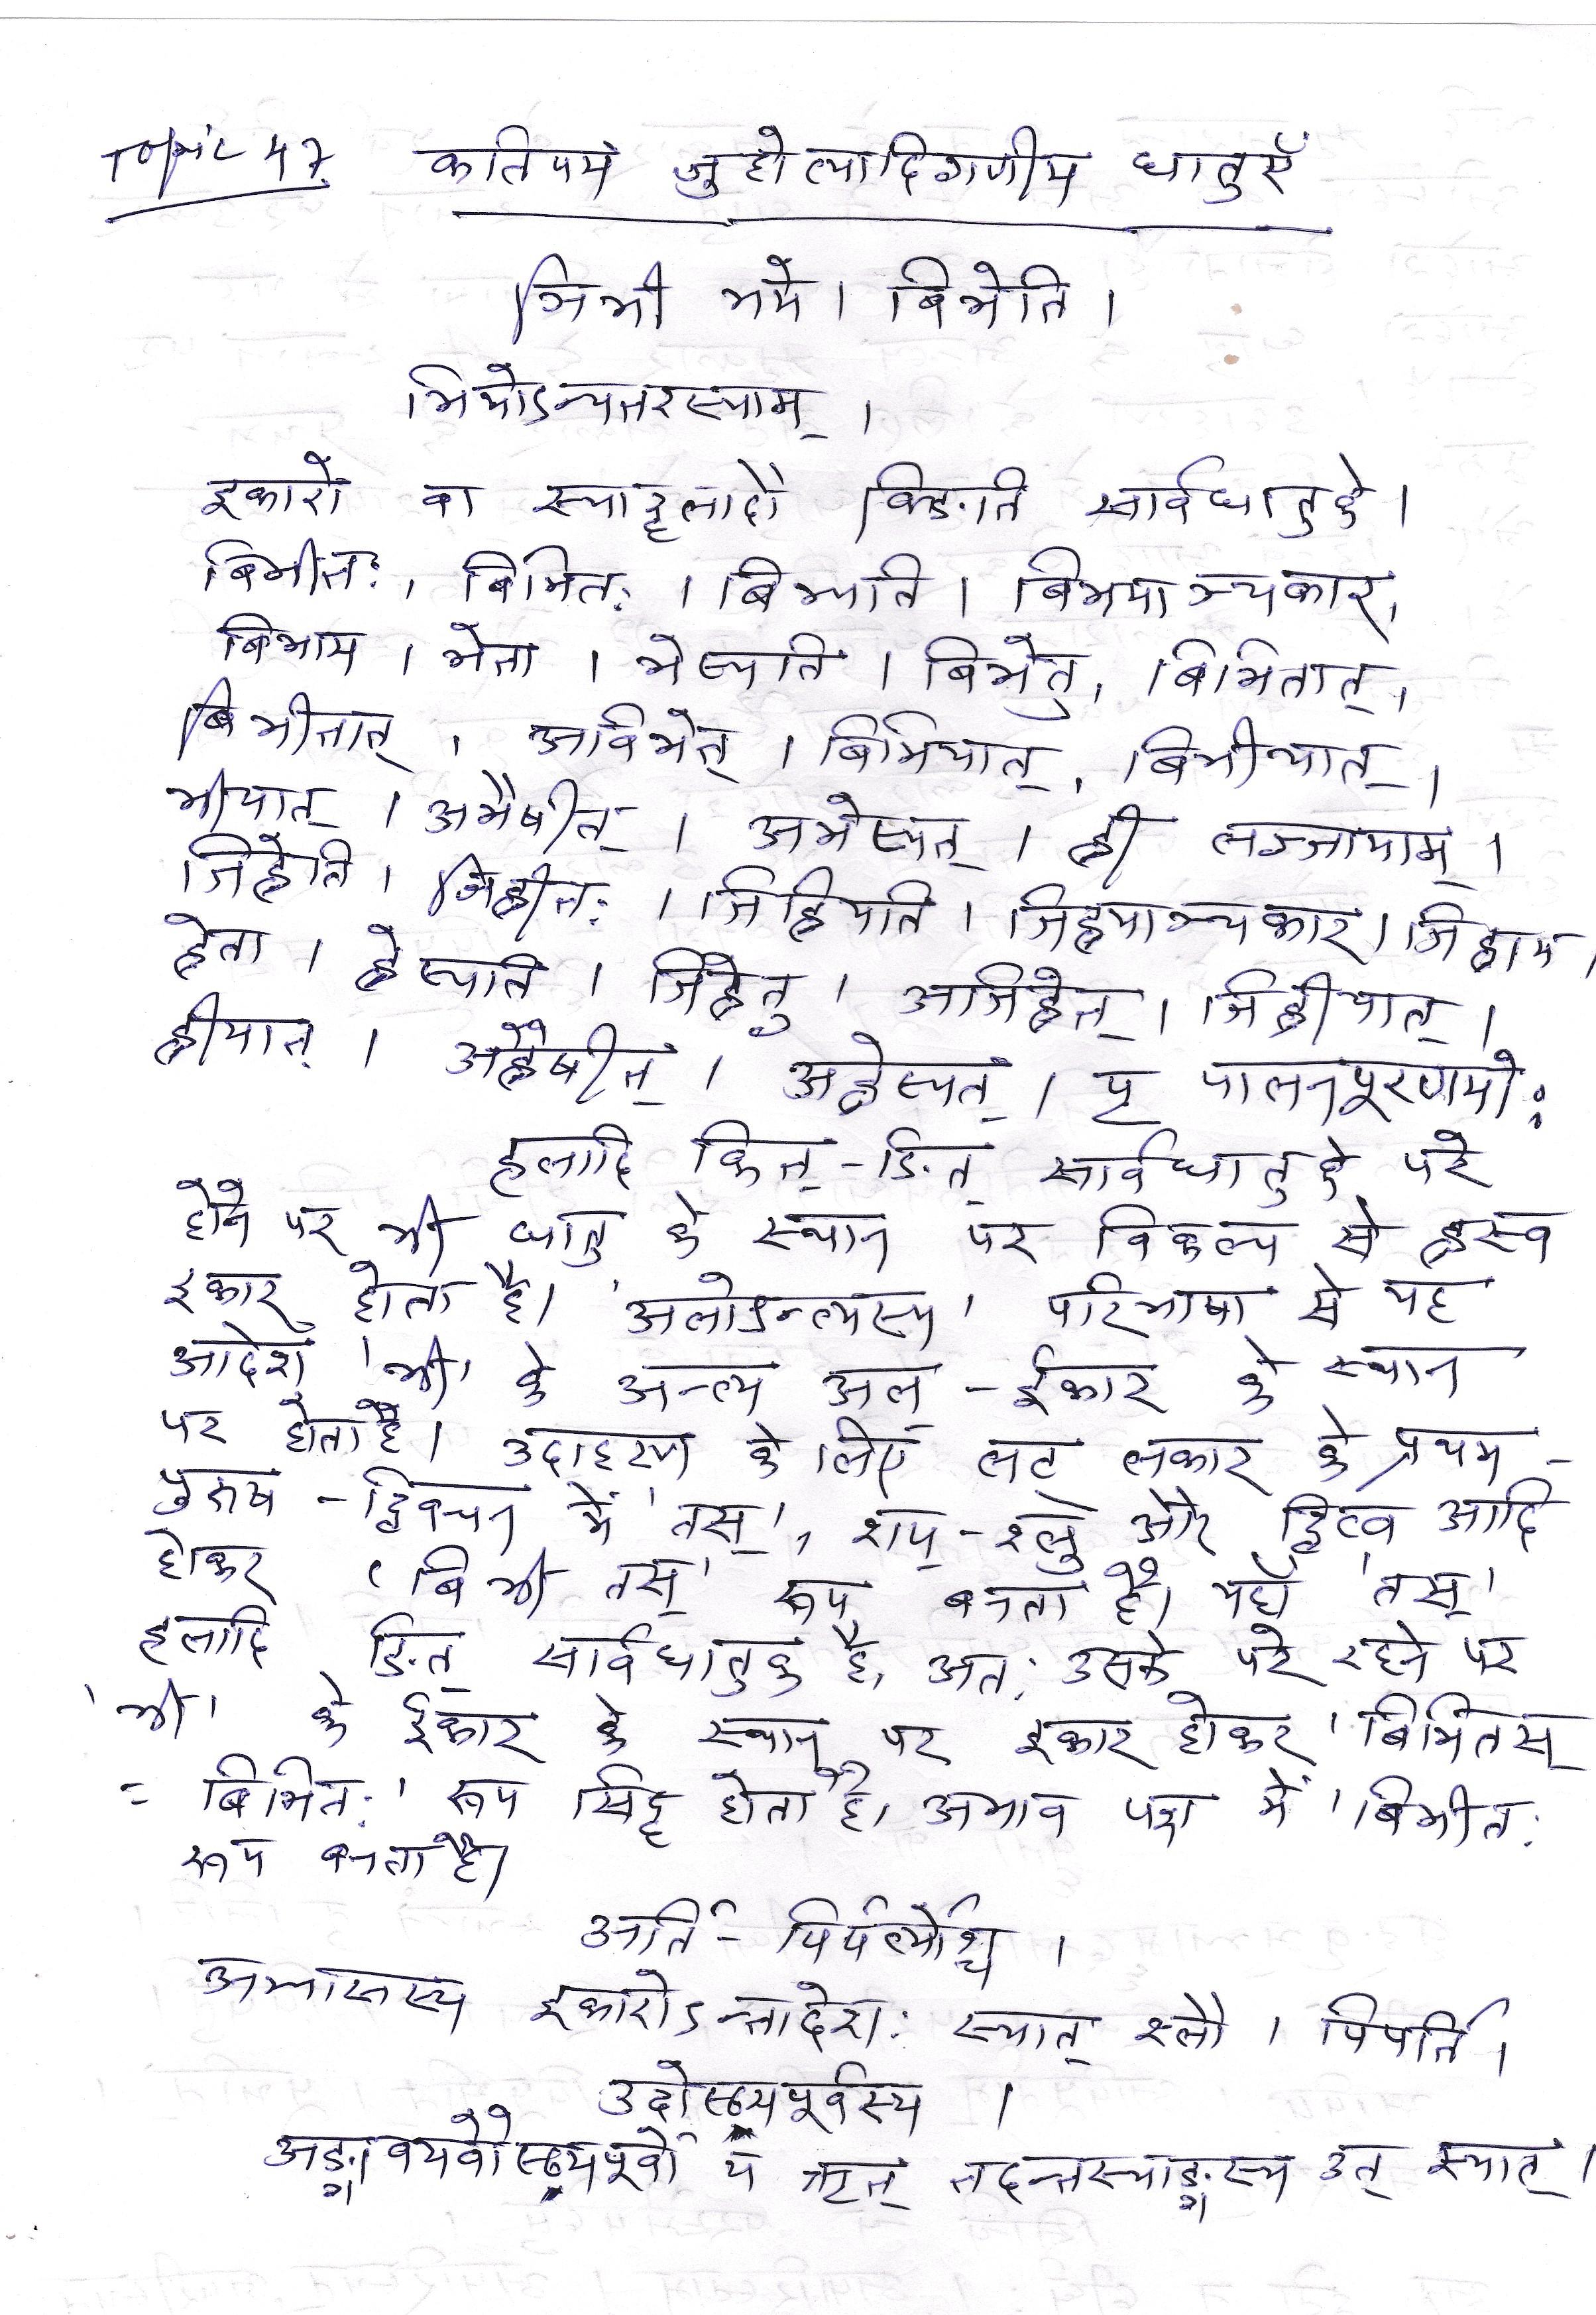 Topic 47. कतिपय जुहोत्यादिगणीय धातुएँ
ञिभी भये। बिभेति।
भियोऽन्यतरस्याम्।
इकारो वा स्याद्धलादौ क्ङिति सार्वधातुके।
बिभीतः, बिभितः। बिभ्यति। बिभयाञ्चकार,
बिभाय। भेता। भेष्यति। बिभेतु, बिभितात्,
बिभीतात्। अबिभेत्। बिभियात्, बिभीयात्।
भीयात्। अभैषीत्। अभेष्यत्। ह्री लज्जायाम्।
जिह्रेति। जिह्रीतः। जिह्रियति। जिह्रयाञ्चकार। जिह्राय।
ह्रेता। ह्रेष्यति। जिह्रेतु। अजिह्रेत्। जिह्रीयात्।
ह्रीयात्। अह्रैषीत्। अह्रेष्यत्। पृ पालनपूरणयोः
हलादि कित्-ङित् सार्वधातुक परे
होने पर भी धातु के स्थान पर विकल्प से ह्रस्व
इकार होता है। 'अलोऽन्त्यस्य' परिभाषा से यह
आदेश 'भी' के अन्त्य अल् - ईकार के स्थान
पर होता है। उदाहरण के लिए लट् लकार के प्रथम-
पुरुष - द्विवचन में 'तस्', शप्-श्लु और द्वित्व आदि
होकर 'बिभी तस्' रूप बनता है। यहाँ 'तस्'
हलादि ङित् सार्वधातुक है, अतः उसके परे रहने पर
'भी' के ईकार के स्थान पर इकार होकर 'बिभितस्
= बिभितः' रूप सिद्ध होता है। अभाव पक्ष में 'बिभीतः
रूप बनता है।
अर्ति - पिपर्त्योश्च।
अभ्यासस्य इकारोऽन्तादेशः स्यात् श्लौ। पिपर्ति।
उदोष्ठ्यपूर्वस्य।
अङ्गावयवौष्ठ्यपूर्वो य ॠत् तदन्तस्याङ्गस्य उत् स्यात्।